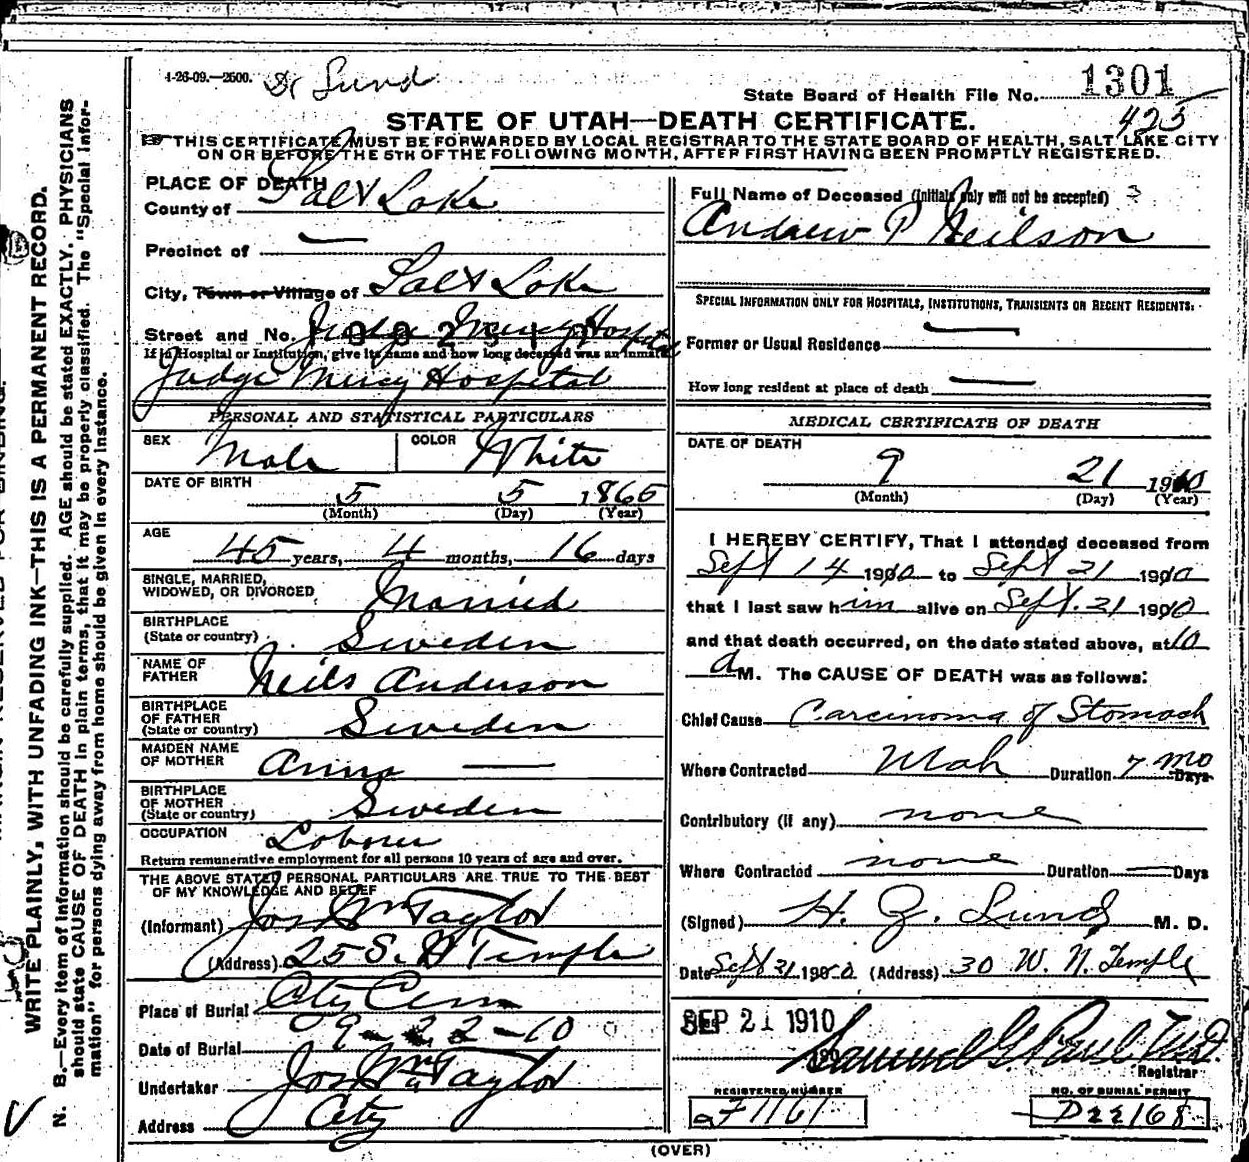 4-26-09.—2500. Dr Lund
State Board of Health File No. 1301
425
STATE OF UTAH—DEATH CERTIFICATE.
THIS CERTIFICATE MUST BE FORWARDED BY LOCAL REGISTRAR TO THE STATE BOARD OF HEALTH, SALT LAKE CITY
ON OR BEFORE THE 5TH OF THE FOLLOWING MONTH, AFTER FIRST HAVING BEEN PROMPTLY REGISTERED.
PLACE OF DEATH
County of Salt Lake
Precinct of —
City, Town or Village of Salt Lake
Street and No. Judge Mercy Hospital
If in Hospital or Institution, give its name and how long deceased was an inmate
Judge Mercy Hospital
PERSONAL AND STATISTICAL PARTICULARS
SEX Male COLOR White
DATE OF BIRTH 5 5 1865
(Month) (Day) (Year)
AGE 45 years, 4 months, 16 days
SINGLE, MARRIED,
WIDOWED, OR DIVORCED Married
BIRTHPLACE
(State or country) Sweden
NAME OF
FATHER Neils Anderson
BIRTHPLACE
OF FATHER
(State or country) Sweden
MAIDEN NAME
OF MOTHER Anna —
BIRTHPLACE
OF MOTHER
(State or country) Sweden
OCCUPATION Laborer
Return remunerative employment for all persons 10 years of age and over.
THE ABOVE STATED PERSONAL PARTICULARS ARE TRUE TO THE BEST
OF MY KNOWLEDGE AND BELIEF
(Informant) Jos Wm Taylor
(Address) 25 S. W Temple
Place of Burial City Cem
Date of Burial 9-22-10
Undertaker Jos Wm Taylor
Address City
Full Name of Deceased (Initials only will not be accepted)
Andrew P Neilson
SPECIAL INFORMATION ONLY FOR HOSPITALS, INSTITUTIONS, TRANSIENTS OR RECENT RESIDENTS.
Former or Usual Residence —
How long resident at place of death —
MEDICAL CERTIFICATE OF DEATH
DATE OF DEATH
9 21 1910
(Month) (Day) (Year)
I HEREBY CERTIFY, That I attended deceased from
Sept 14 1910 to Sept 21 1910
that I last saw him alive on Sept. 21 1910
and that death occurred, on the date stated above, at 10
a M. The CAUSE OF DEATH was as follows:
Chief Cause Carcinoma of Stomach
Where Contracted Utah Duration 7 mo Days
Contributory (if any) none
Where Contracted none Duration — Days
(Signed) H. Z. Lund M. D.
Date Sept 21 1910 (Address) 30 W. N. Temple
SEP 21 1910
Samuel G. Paul M.D.
Registrar
REGISTERED NUMBER
F1161
NO. OF BURIAL PERMIT
D22168
(OVER)
WRITE PLAINLY, WITH UNFADING INK—THIS IS A PERMANENT RECORD.
N. B.—Every item of information should be carefully supplied. AGE should be stated EXACTLY. PHYSICIANS
should state CAUSE OF DEATH in plain terms, that it may be properly classified. The "Special Infor-
mation" for persons dying away from home should be given in every instance.